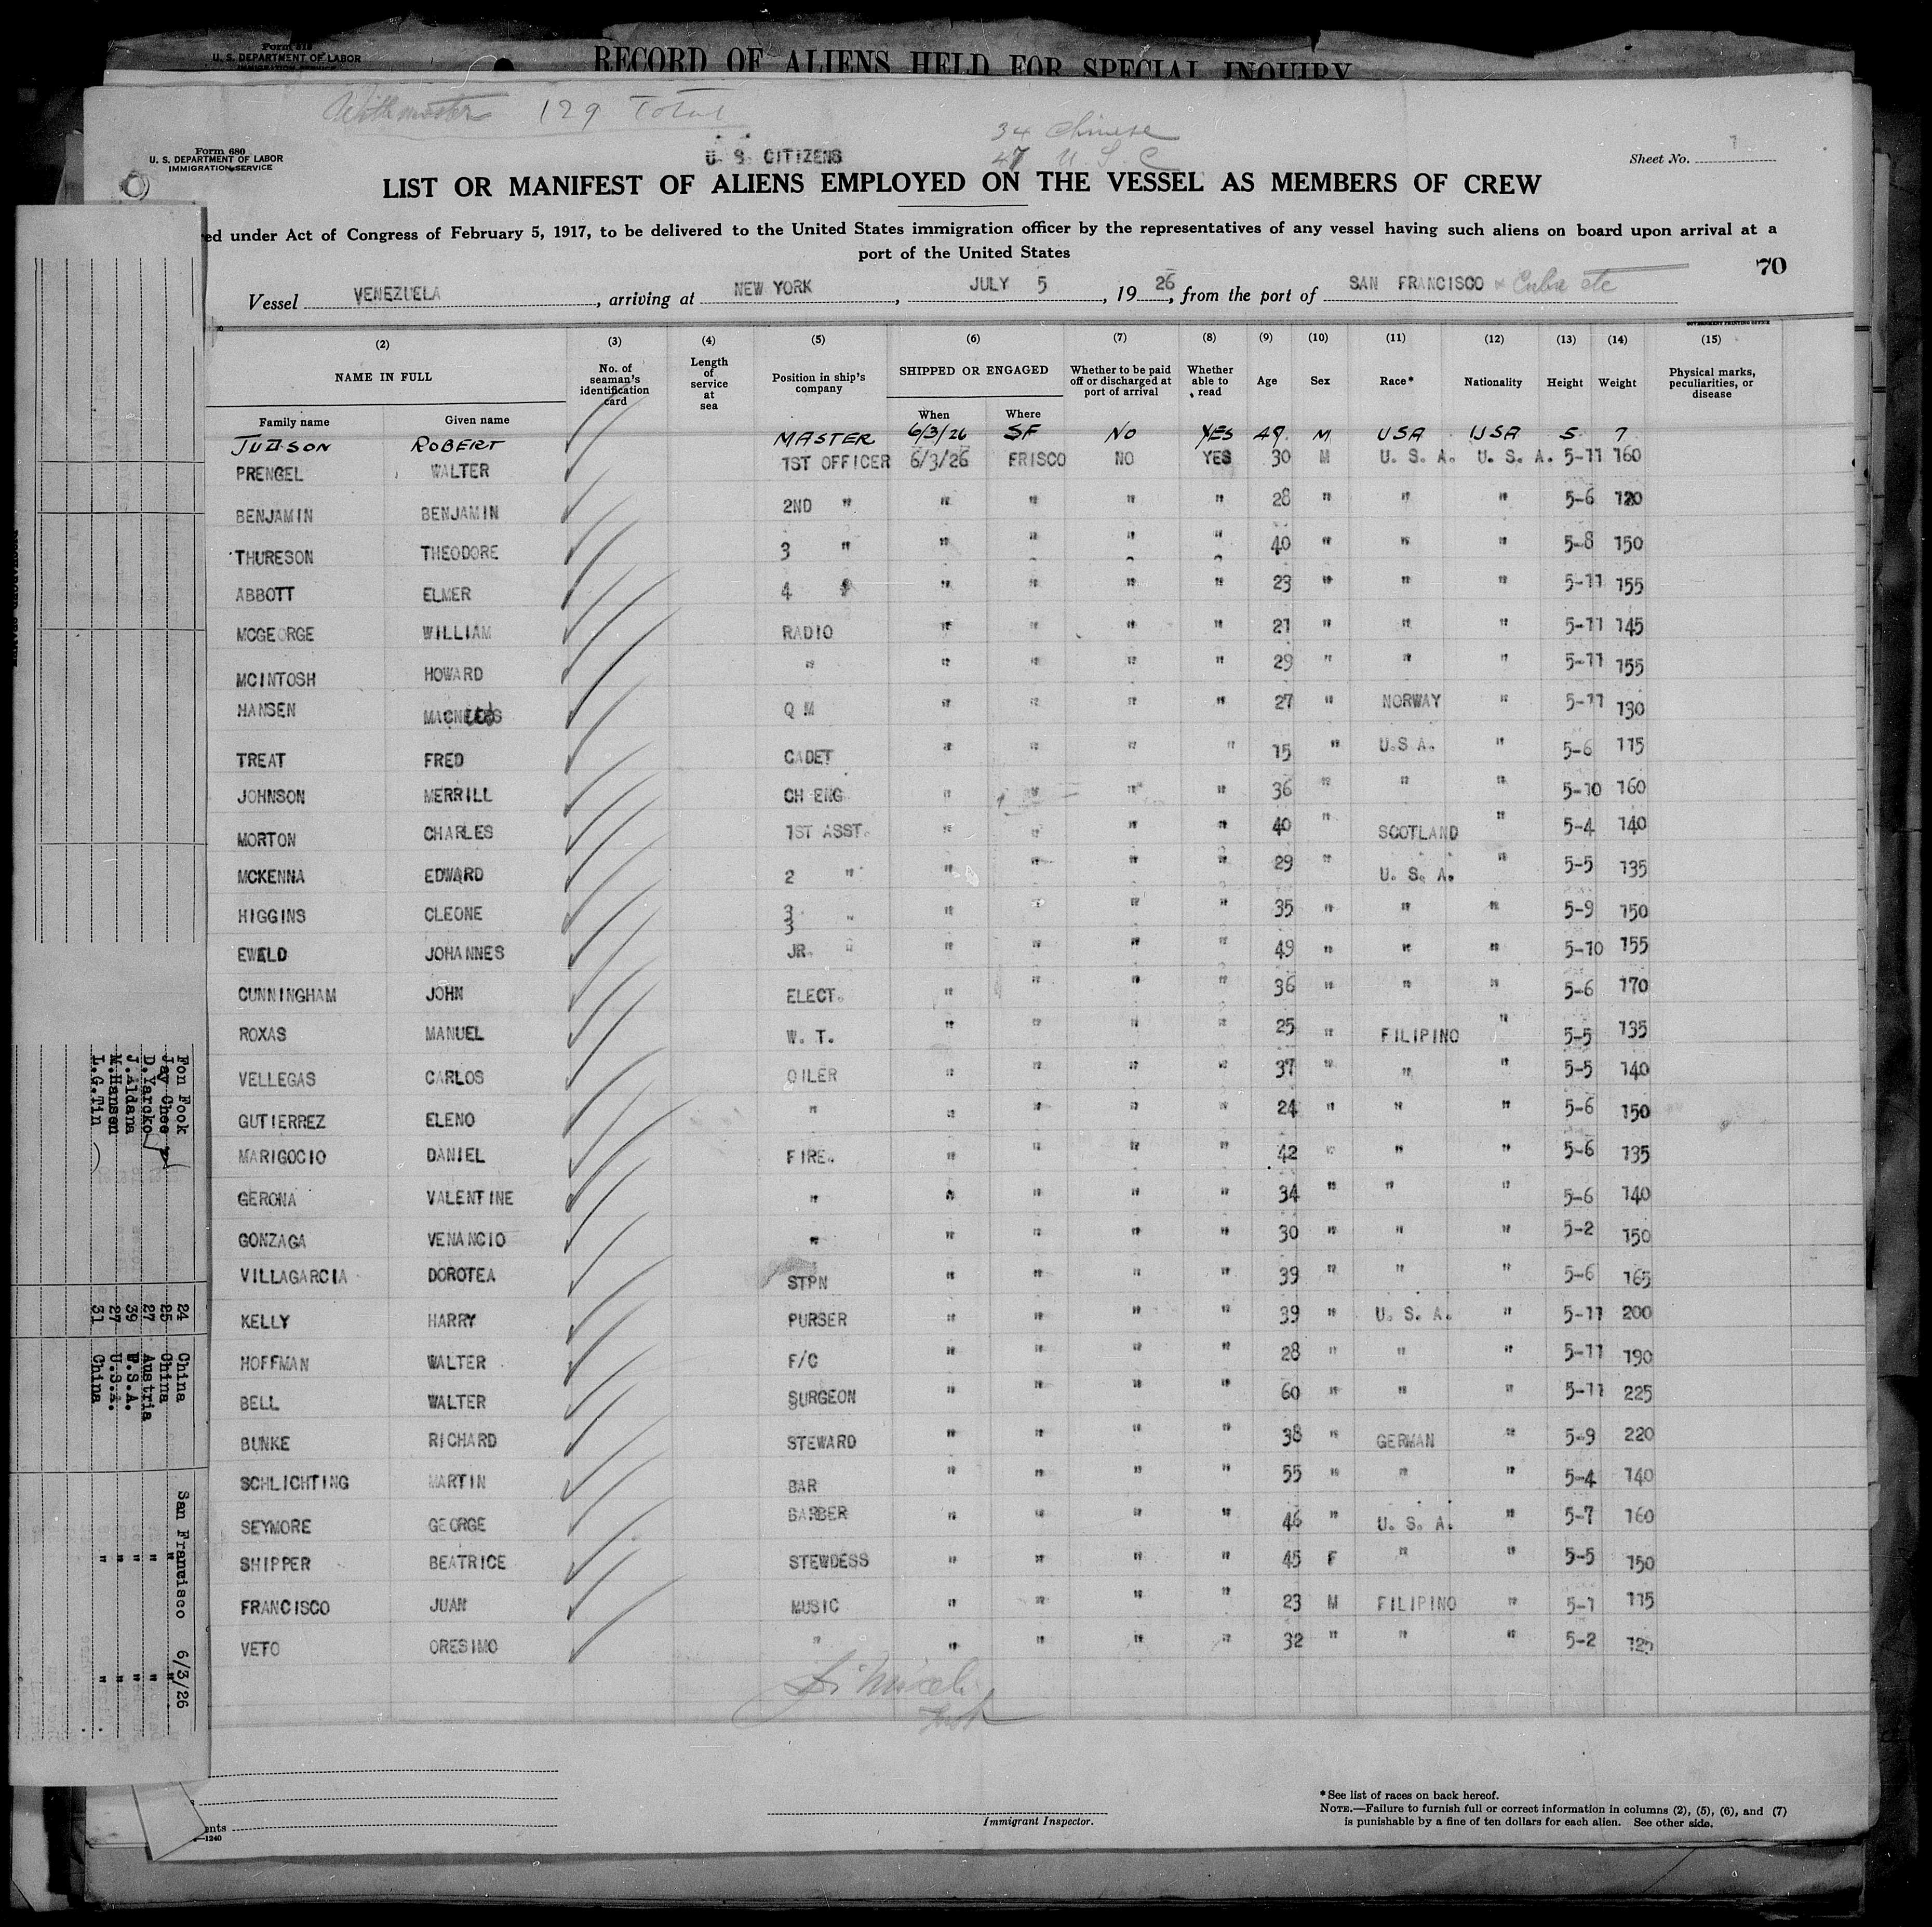 Form 618
U. S. DEPARTMENT OF LABOR
IMMIGRATION SERVICE
RECORD OF ALIENS HELD FOR SPECIAL INQUIRY
129 Total
34 Chinese
47 U. S. C
Form 680
U. S. DEPARTMENT OF LABOR
IMMIGRATION SERVICE
U. S. CITIZENS
Sheet No.
LIST OR MANIFEST OF ALIENS EMPLOYED ON THE VESSEL AS MEMBERS OF CREW
ed under Act of Congress of February 5, 1917, to be delivered to the United States immigration officer by the representatives of any vessel having such aliens on board upon arrival at a
port of the United States
70
Vessel VENEZUELA, arriving at NEW YORK, JULY 5, 1926, from the port of SAN FRANCISCO & Cuba etc
GOVERNMENT PRINTING OFFICE
(2) (3) (4) (5) (6) (7) (8) (9) (10) (11) (12) (13) (14) (15)
NAME IN FULL No. of seaman's identification card Length of service at sea Position in ship's company SHIPPED OR ENGAGED Whether to be paid off or discharged at port of arrival Whether able to read Age Sex Race* Nationality Height Weight Physical marks, peculiarities, or disease
Family name Given name When Where
JUDSON ROBERT MASTER 6/3/26 SF NO YES 49 M USA USA 5 7
PRENGEL WALTER 1ST OFFICER 6/3/26 FRISCO NO YES 30 M U. S. A. U. S. A. 5-11 160
BENJAMIN BENJAMIN 2ND " " " " " 28 " " " 5-6 120
THURESON THEODORE 3 " " " " " 40 " " " 5-8 150
ABBOTT ELMER 4 " " " " " 23 " " " 5-11 155
MCGEORGE WILLIAM RADIO " " " " 21 " " " 5-11 145
MCINTOSH HOWARD " " " " " 29 " " " 5-11 155
HANSEN Q M " " " " 27 " NORWAY " 5-11 130
TREAT FRED CADET " " " " 15 " U.S A. " 5-6 115
JOHNSON MERRILL CH ENG " " " " 36 " " " 5-10 160
MORTON CHARLES 1ST ASST. " " " " 40 " SCOTLAND " 5-4 140
MCKENNA EDWARD 2 " " " " " 29 " U. S. A. " 5-5 135
HIGGINS CLEONE 3 " " " " " 35 " " " 5-9 150
3
EWALD JOHANNES JR. " " " " " 49 " " " 5-10 155
CUNNINGHAM JOHN ELECT. " " " " 36 " " " 5-6 170
ROXAS MANUEL W. T. " " " " 25 " FILIPINO " 5-5 135
VELLEGAS CARLOS OILER " " " " 37 " " " 5-5 140
GUTIERREZ ELENO " " " " " 24 " " " 5-6 150
MARIGOCIO DANIEL FIRE. " " " " 42 " " " 5-6 135
GERONA VALENTINE " " " " " 34 " " " 5-6 140
GONZAGA VENANCIO " " " " " 30 " " " 5-2 150
VILLAGARCIA DOROTEA STPN " " " " 39 " " " 5-6 165
KELLY HARRY PURSER " " " " 39 " U. S. A. " 5-11 200
HOFFMAN WALTER F/C " " " " 28 " " " 5-11 190
BELL WALTER SURGEON " " " " 60 " " " 5-11 225
BUNKE RICHARD STEWARD " " " " 38 " GERMAN " 5-9 220
SCHLICHTING MARTIN BAR " " " " 55 " " " 5-4 140
SEYMORE GEORGE BARBER " " " " 46 " U. S. A. " 5-7 160
SHIPPER BEATRICE STEWDESS " " " " 45 F " " 5-5 150
FRANCISCO JUAN MUSIC " " " " 23 M FILIPINO " 5-1 115
VETO ORESIMO " " " " " 32 " " " 5-2 125
Immigrant Inspector.
*See list of races on back hereof.
NOTE.—Failure to furnish full or correct information in columns (2), (5), (6), and (7)
is punishable by a fine of ten dollars for each alien. See other side.
ents
—1240
Fon Fook 24 China San Francisco 6/3/26
Jay Chee 25 China " "
D.Yarcko 27 Austria " "
J.Aldana 39 U.S.A. " "
M.Hansen 27 U.S.A. " "
L.G.Tin 31 China " "